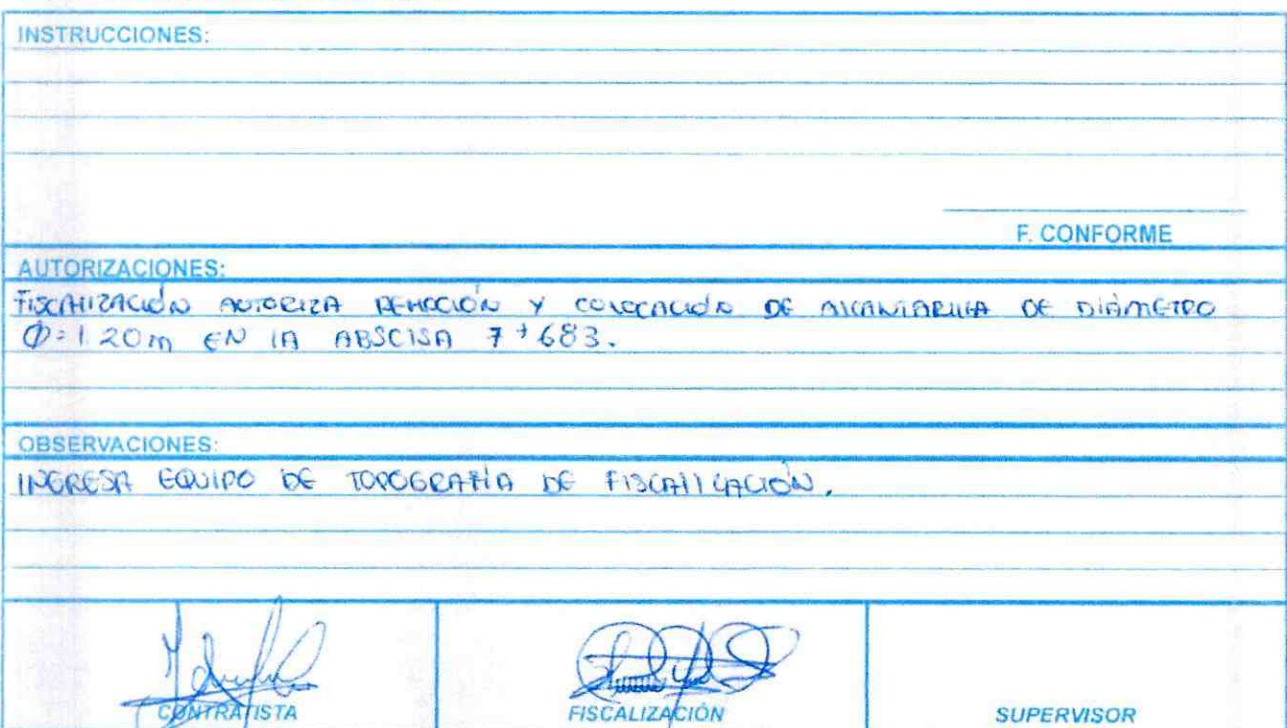 INSTRUCCIONES:
F. CONFORME
AUTORIZACIONES:
FISCALIZACIÓN AUTORIZA REMOCIÓN Y COLOCACIÓN DE ALCANTARILLA DE DIÁMETRO
Ø=1.20m EN LA ABSCISA 7+683.
OBSERVACIONES:
INGRESA EQUIPO DE TOPOGRAFÍA DE FISCALIZACIÓN.
CONTRATISTA
FISCALIZACIÓN
SUPERVISOR